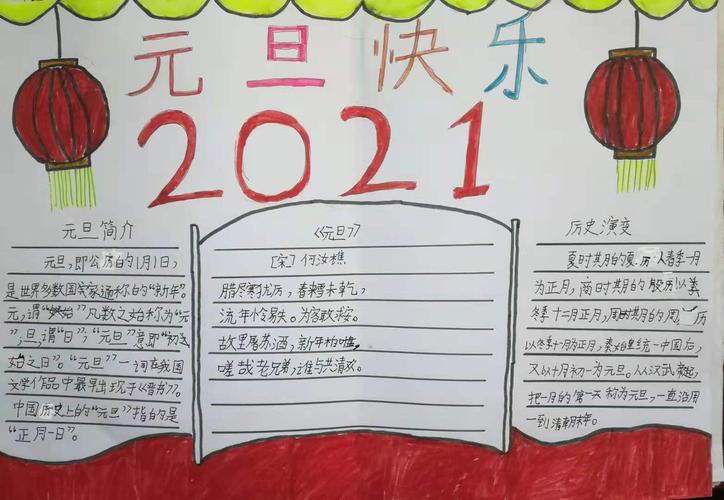 元旦快乐
2021
元旦简介
元旦，即公历的1月1日，
是世界多数国家通称的“新年”。
元，谓“始”，凡数之始称为“元
”，旦，谓“日”；“元旦”意即“初
始之日”。“元旦”一词在我国
文学作品中最早出现于《晋书》。
中国历史上的“元旦”指的是
“正月一日”。
《元旦》
[宋]何汝樵
腊尽寒犹厉，春未乾，
流年今易失。为客敢求安。
故里屠苏酒，新年柏叶
嗟哉老兄弟，谁与共清欢。
历史演变
夏时期的夏历以春季一月
为正月，商时期的殷历以
冬季十二月正月，周时期的周历
以冬季十月为正月，秦始皇统一中国后，
又以十月初一为元旦。从汉武起，
把一月的第一天称为元旦，一直沿用
到清朝末年。